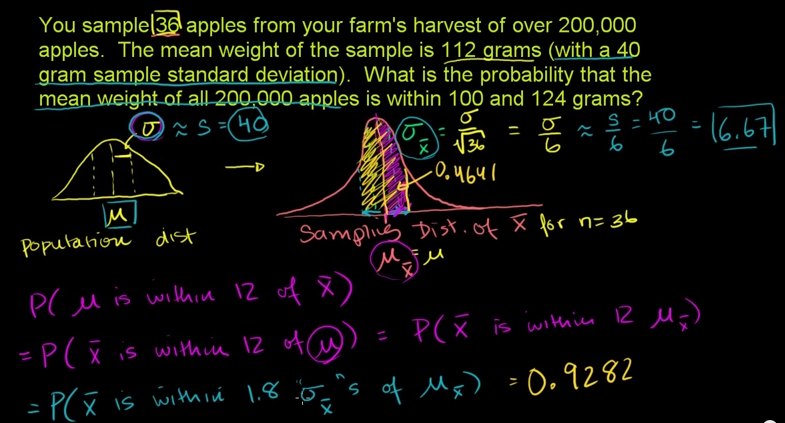 You sample 36 apples from your farm's harvest of over 200,000
apples. The mean weight of the sample is 112 grams (with a 40
gram sample standard deviation). What is the probability that the
mean weight of all 200,000 apples is within 100 and 124 grams?
σ ≈ s = 40
σx̄ = σ/√36 = σ/6 ≈ s/6 = 40/6 = 6.67
0.4641
μ
Population dist
Sampling Dist. of x̄ for n = 36
μx̄ = μ
P( μ is within 12 of x̄ )
= P( x̄ is within 12 of μ ) = P( x̄ is within 12 μx̄ )
= P( x̄ is within 1.8 "σx̄"s of μx̄ ) = 0.9282